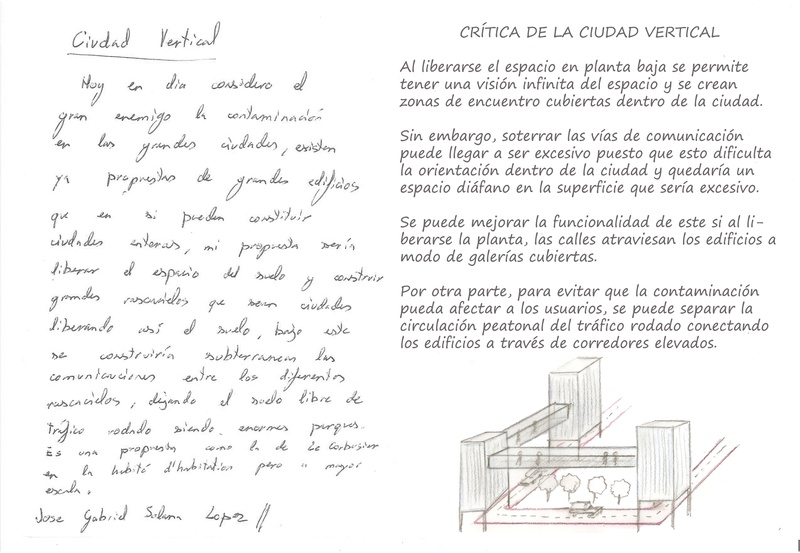 Ciudad Vertical
Hoy en dia considero el
gran enemigo la contaminación
en las grandes ciudades, existen
ya propuestas de grandes edificios
que en si pueden constituir
ciudades enteras, mi propuesta sería
liberar el espacio del suelo y construir
grandes rascacielos que sean ciudades
liberando así el suelo, bajo este
se construiría subterraneas las
comunicaciones entre los diferentes
rascacielos, dejando el suelo libre de
tráfico rodado siendo enormes parques.
Es una propuesta como la de Le Corbusier
en la habité d'habitation pero a mayor
escala.
Jose Gabriel Solana Lopez
CRÍTICA DE LA CIUDAD VERTICAL
Al liberarse el espacio en planta baja se permite
tener una visión infinita del espacio y se crean
zonas de encuentro cubiertas dentro de la ciudad.
Sin embargo, soterrar las vías de comunicación
puede llegar a ser excesivo puesto que esto dificulta
la orientación dentro de la ciudad y quedaría un
espacio diáfano en la superficie que sería excesivo.
Se puede mejorar la funcionalidad de este si al li-
berarse la planta, las calles atraviesan los edificios a
modo de galerías cubiertas.
Por otra parte, para evitar que la contaminación
pueda afectar a los usuarios, se puede separar la
circulación peatonal del tráfico rodado conectando
los edificios a través de corredores elevados.